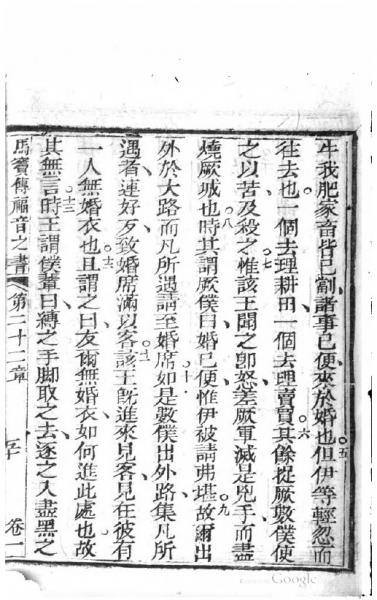 牛我肥家畜皆已劏諸事已便來於婚也五但伊等輕忽而
往去也一個去理耕田一個去理賣買六其餘捉厥數僕使
之以苦及殺之七惟該王聞之卽怒差厥軍滅是兇手而盡
燒厥城也八時其謂厥僕曰婚已便惟伊被請弗堪九故爾出
外於大路而凡所遇請至婚席十如是數僕出外路集凡所
遇者連好歹致婚席滿以客十一該王旣進來見客見在彼有
一人無婚衣也十二且謂之曰友爾無婚衣如何進此處也故
其無言十三時王謂僕輩曰縛之手脚取之去逐之入盡黑之
馬竇傳福音之書 第二十二章 五十 卷一
Google